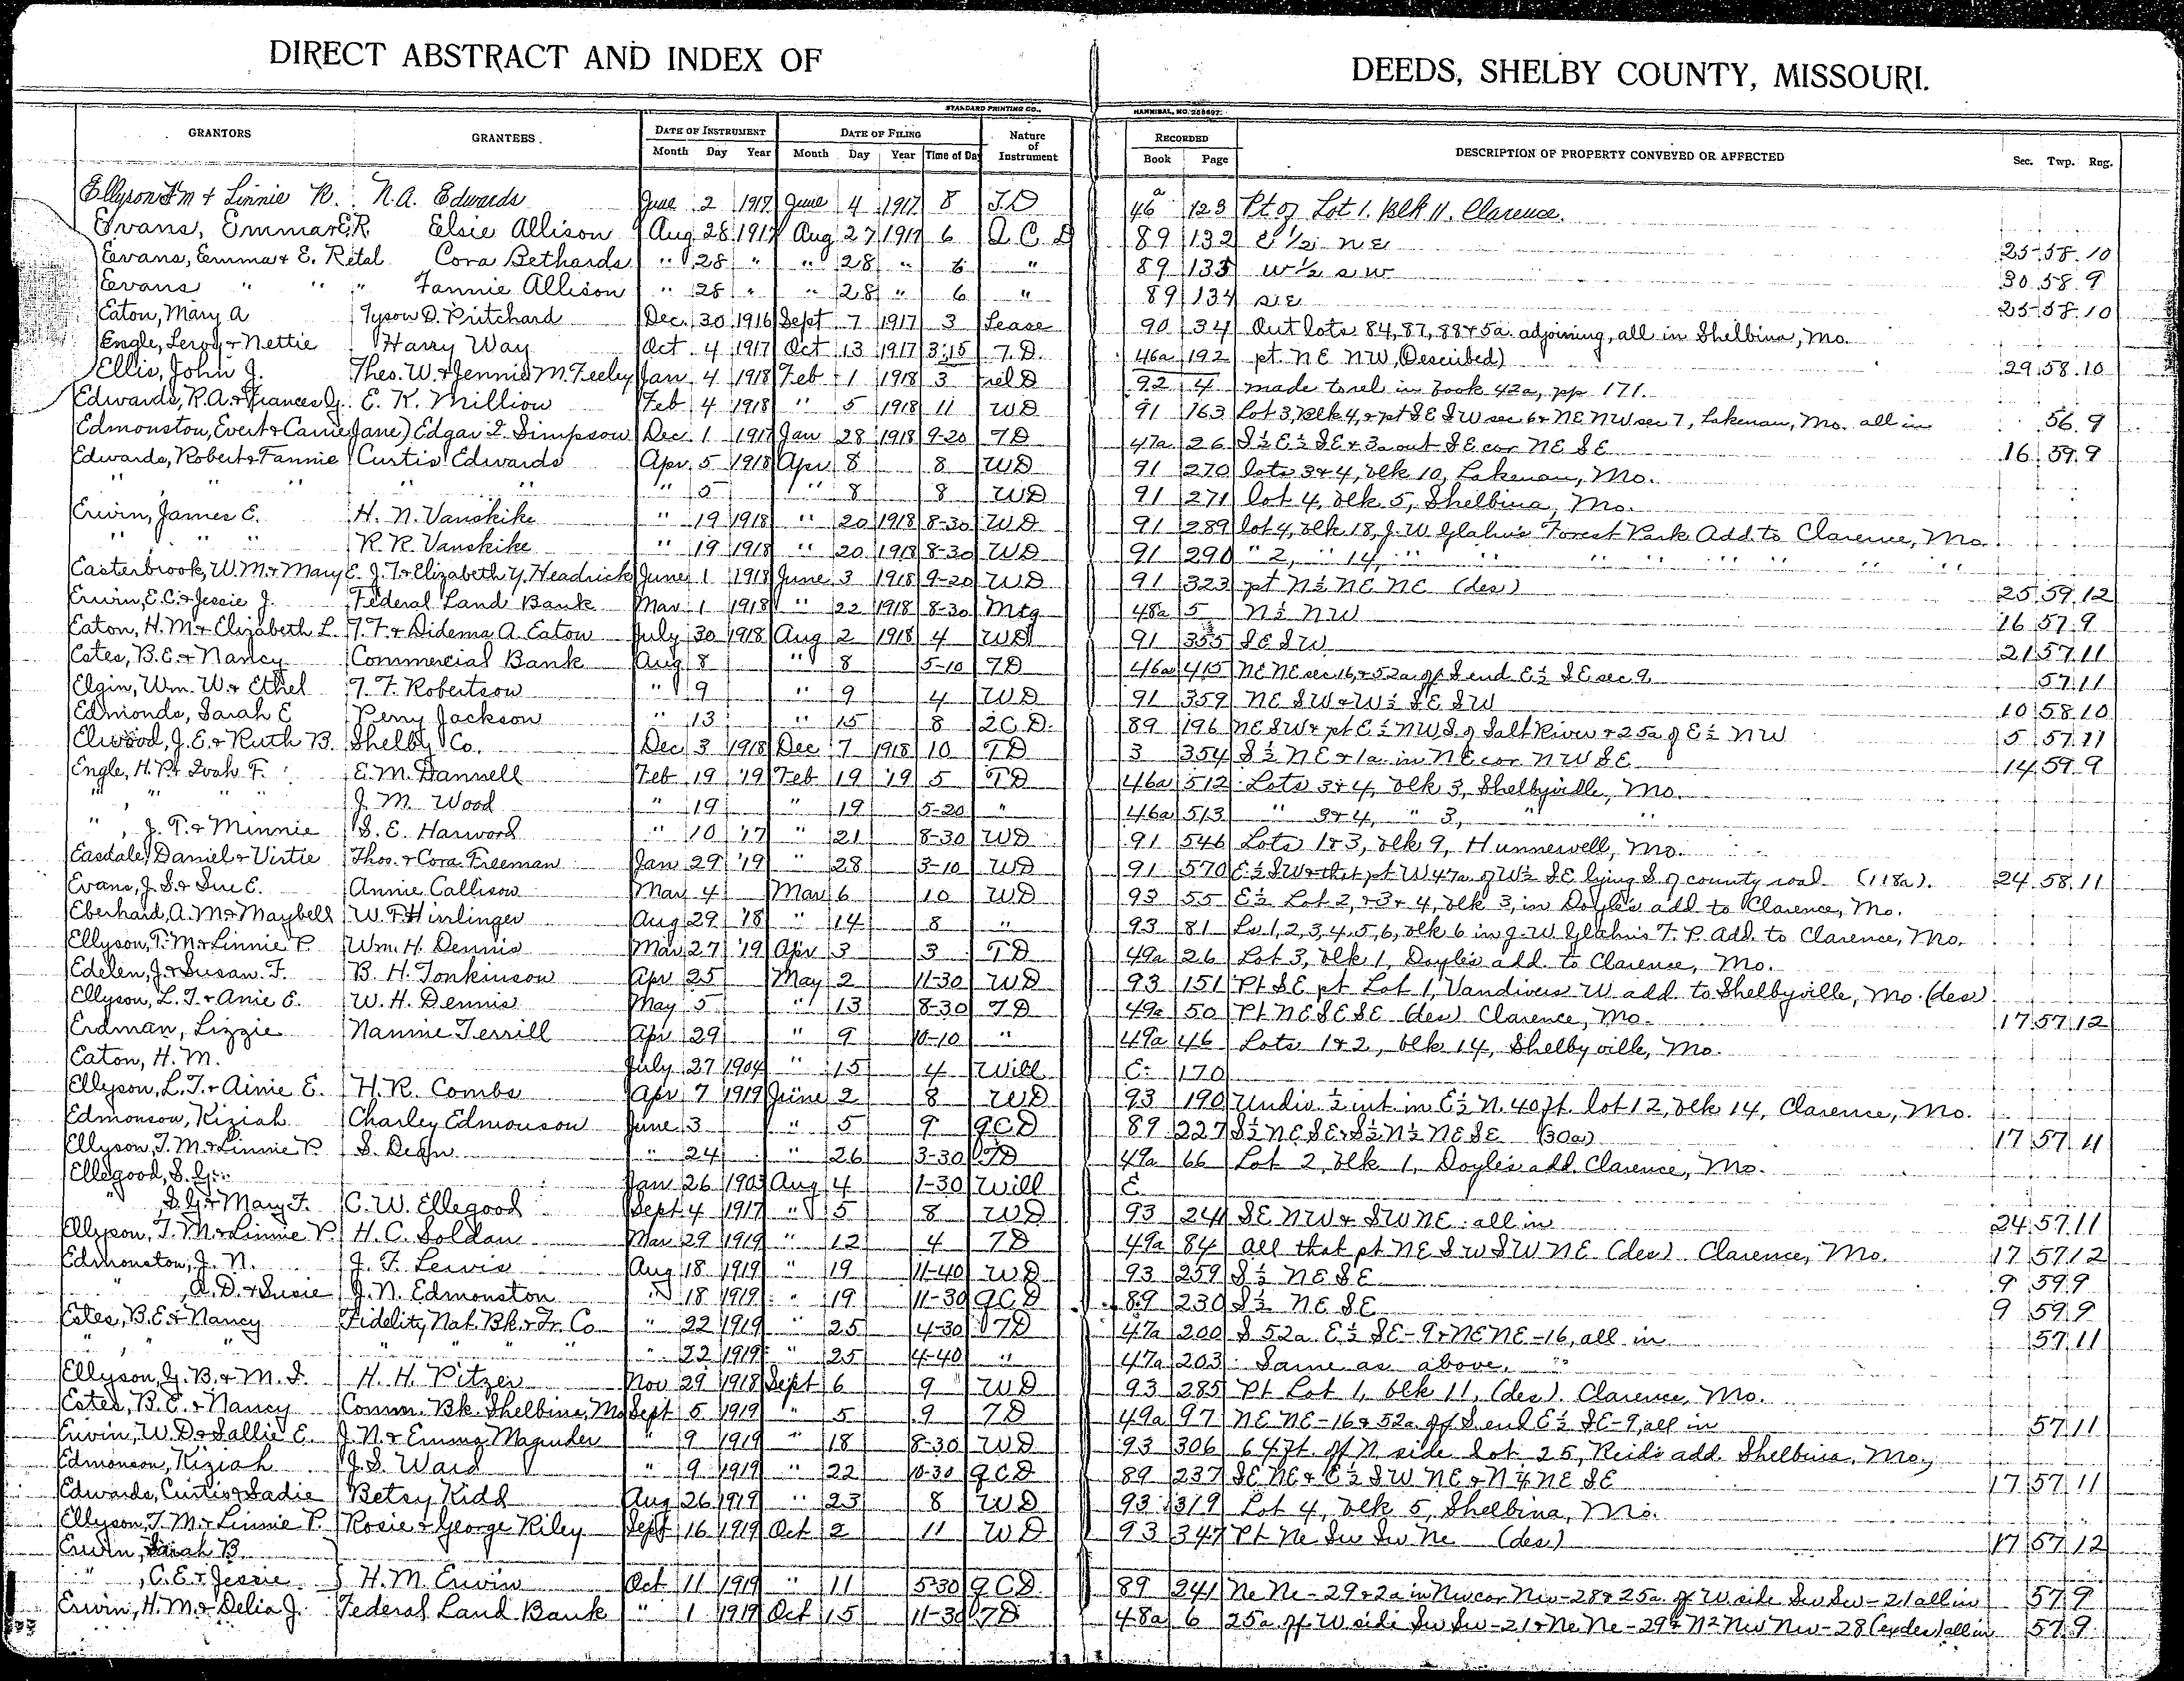 DIRECT ABSTRACT AND INDEX OF DEEDS, SHELBY COUNTY, MISSOURI.
STANDARD PRINTING CO., HANNIBAL, NO.
GRANTORS GRANTEES. DATE OF INSTRUMENT DATE OF FILING Nature of Instrument RECORDED DESCRIPTION OF PROPERTY CONVEYED OR AFFECTED Sec. Twp. Rng.
Month Day Year Month Day Year Time of Day Book Page
Ellyson & Linnie N.A. Edwards June 2 1917 June 4 1917 8 T.D 46a 123 Pt of Lot 1. Blk 11. Clarence.
Evans, Emma & E.R Elsie Allison Aug 28 1917 Aug 27 1917 6 Q C D 89 132 E 1/2 NE 25 58 10
Evans, Emma & E. R etal Cora Bethards " 28 " " 28 " 6 " 89 133 W 1/2 SW 30 58 9
Evans " " " Fannie Allison " 28 " " 28 " 6 " 89 134 SE 25 58 10
Eaton, Mary A Tyson D. Pritchard Dec. 30 1916 Sept 7 1917 3 Lease 90 34 Out lots 84, 87, 88 & 5a adjoining, all in Shelbina, Mo.
Engle, Leroy & Nettie Harry Way Oct 4 1917 Oct 13 1917 3:15 T.D. 46a 192 pt. NE NW, (Described) 29 58 10
Ellis, John J. Theo. W. & Jennie M. Feeley Jan 4 1918 Feb 1 1918 3 rel D 92 4 made to rel in book 42a, pp 171.
Edwards, R.A. & Frances G. E. K. Million Feb 4 1918 " 5 1918 11 WD 91 163 Lot 3, Blk 4, & pt SE SW sec 6 & NE NW sec 7, Lakenan, Mo. all in 56 9
Edmonston, Evert & Carrie (Jane) Edgar L. Simpson Dec 1 1917 Jan 28 1918 9-20 TD 47a 26 S½ E½ SE & 3a out SE cor NE SE 16 59 9
Edwards, Robert & Fannie Curtis Edwards Apr 5 1918 Apr 8 8 WD 91 270 lots 3 & 4, blk 10, Lakenan, Mo.
" " " " " " 5 " 8 8 WD 91 271 lot 4, blk 5, Shelbina, Mo.
Erwin, James E. H. N. Vanskike " 19 1918 " 20 1918 8-30 WD 91 289 lot 4, blk 18, J. W Glahn's Forest Park Add. to Clarence, Mo.
" " " R. R. Vanskike " 19 1918 " 20 1918 8-30 WD 91 290 " 2, " 14, " " " " " " "
Easterbrook, W. M. & Mary E. J. T. & Elizabeth Y. Headrick June 1 1918 June 3 1918 9-20 WD 91 323 pt N½ NE NE (des) 25 59 12
Erwin, E.C. & Jessie J. Federal Land Bank Mar 1 1918 " 22 1918 8-30 Mtg 48a 5 N½ NW 16 57 9
Eaton, H. M. & Elizabeth L. T. F. & Didema A. Eaton July 30 1918 Aug 2 1918 4 WD 91 355 SE SW 21 57 11
Estes, B.E. & Nancy Commercial Bank Aug 8 " 8 5-10 TD 46a 415 NE NE sec 16, & 52a off S end E½ SE sec 9 57 11
Elgin, Wm. W. & Ethel T. F. Robertson " 9 " 9 4 WD 91 359 NE SW & W½ SE SW 10 58 10
Edmonds, Sarah E Perry Jackson " 13 " 15 8 QCD. 89 196 NE SW & pt E½ NW S. of Salt River & 25a of E½ NW 5 57 11
Elwood, J. E. & Ruth B. Shelby Co. Dec 3 1918 Dec 7 1918 10 TD 3 354 S½ NE & 1a in NE cor NW SE 14 59 9
Engle, H. P. & Ivah F. E. M. Dannell Feb 19 '19 Feb 19 '19 5 TD 46a 512 Lots 3 & 4, blk 3, Shelbyville, Mo.
" " " " J. M. Wood " 19 " 19 5-20 " 46a 513 " 3 & 4, " 3, " "
" , J. T. & Minnie S. E. Harwood " 10 '17 " 21 8-30 WD 91 546 Lots 1 & 3, blk 9, Hunnewell, Mo.
Easdale, Daniel & Virtie Thos. & Cora Freeman Jan 29 '19 " 28 3-10 WD 91 570 E½ SW & that pt W 47a of W½ SE lying S of county road (118a). 24 58 11
Evans, J. S. & Sue E. Annie Callison Mar 4 Mar 6 10 WD 93 55 E½ Lot 2, & 3 & 4, blk 3, in Doyle's add to Clarence, Mo.
Eberhard, A. M. & Maybell W. F. Hirlinger Aug 29 '18 " 14 8 " 93 81 Ls 1, 2, 3, 4, 5, 6, blk 6 in J. W Glahn's F. P. Add. to Clarence, Mo.
Ellyson, T. M. & Linnie P. Wm. H. Dennis Mar 27 '19 Apr 3 3 TD 49a 26 Lot 3, blk 1, Doyle's add. to Clarence, Mo.
Edelen, J. & Susan F. B. H. Tonkinson Apr 25 May 2 11-30 WD 93 151 Pt SE pt Lot 1, Vandivers W add. to Shelbyville, Mo. (des)
Ellyson, L. T. & Anie E. W. H. Dennis May 5 " 13 8-30 TD 49a 50 Pt NE SE SE (des) Clarence, Mo. 17 57 12
Erdman, Lizzie Nannie Terrill Apr 29 " 9 10-10 " 49a 46 Lots 1 & 2, blk 14, Shelbyville, Mo.
Eaton, H. M. July 27 1904 " 15 4 Will C 170
Ellyson, L. T. & Ainie E. H. R. Combs Apr 7 1919 June 2 8 WD 93 190 Undiv ½ int. in E½ N. 40 ft. lot 12, blk 14, Clarence, Mo.
Edmonson, Kiziah Charley Edmonson June 3 " 5 9 QCD 89 227 S½ NE SE & S½ N½ NE SE (30a) 17 57 11
Ellyson, T. M. & Linnie P. S. Dean " 24 " 26 3-30 TD 49a 66 Lot 2, blk 1, Doyle's add. Clarence, Mo.
Ellegood, S. G. Jan 26 1903 Aug 4 1-30 Will E
" , S. G. & Mary F. C. W. Ellegood Sept 4 1917 " 5 8 WD 93 241 SE NW & SW NE all in 24 57 11
Ellyson, T. M. & Linnie P. H. C. Soldan Mar 29 1919 " 12 4 TD 49a 84 All that pt NE SW SW NE (des) Clarence, Mo. 17 57 12
Edmonston, J. N. J. F. Lewis Aug 18 1919 " 19 11-40 WD 93 259 S½ NE SE 9 59 9
" , A. D. & Susie J. N. Edmonston " 18 1919 " 19 11-30 QCD 89 230 S½ NE SE 9 59 9
Estes, B.E. & Nancy Fidelity Nat. Bk. & Tr. Co " 22 1919 " 25 4-30 TD 47a 200 S 52a E½ SE-9 & NE NE-16, all in 57 11
" " " " " " " 22 1919 " 25 4-40 " 47a 203 Same as above. "
Ellyson, G. B. & M. S. H. H. Pitzer Nov 29 1918 Sept 6 9 WD 93 285 Pt Lot 1, blk 11, (des). Clarence, Mo.
Estes, B. E. & Nancy Comm. Bk. Shelbina, Mo Sept 5 1919 " 5 9 TD 49a 97 NE NE-16 & 52a off S. end E½ SE-9, all in 57 11
Erwin, W. D. & Sallie E. J. N. & Emma Magruder " 9 1919 " 18 8-30 WD 93 306 64 ft. off N. side Lot 25, Reid's add. Shelbina, Mo.,
Edmonson, Kiziah J. S. Ward " 9 1919 " 22 10-30 QCD 89 237 SE NE & E½ SW NE & N¼ NE SE 17 57 11
Edwards, Curtis & Sadie Betsy Kidd Aug 26 1919 " 23 8 WD 93 319 Lot 4, blk 5, Shelbina, Mo.
Ellyson, T. M. & Linnie P. Rosie & George Riley Sept 16 1919 Oct 2 11 WD 93 347 Pt Ne Sw Sw Ne (des) 17 57 12
Erwin, Sarah B.
" , C. E. & Jessie } H. M. Erwin Oct 11 1919 " 11 5-30 QCD 89 241 Ne Ne-29 & 2a in Nw cor Nw-28 & 25a off W side Sw Sw-21 all in 57 9
Erwin, H. M. & Delia J. Federal Land Bank " 1 1919 Oct 15 11-30 TD 48a 6 25a off W side Sw Sw-21 & Ne Ne-29 & N2 Nw Nw-28 (ex des) all in 57 9